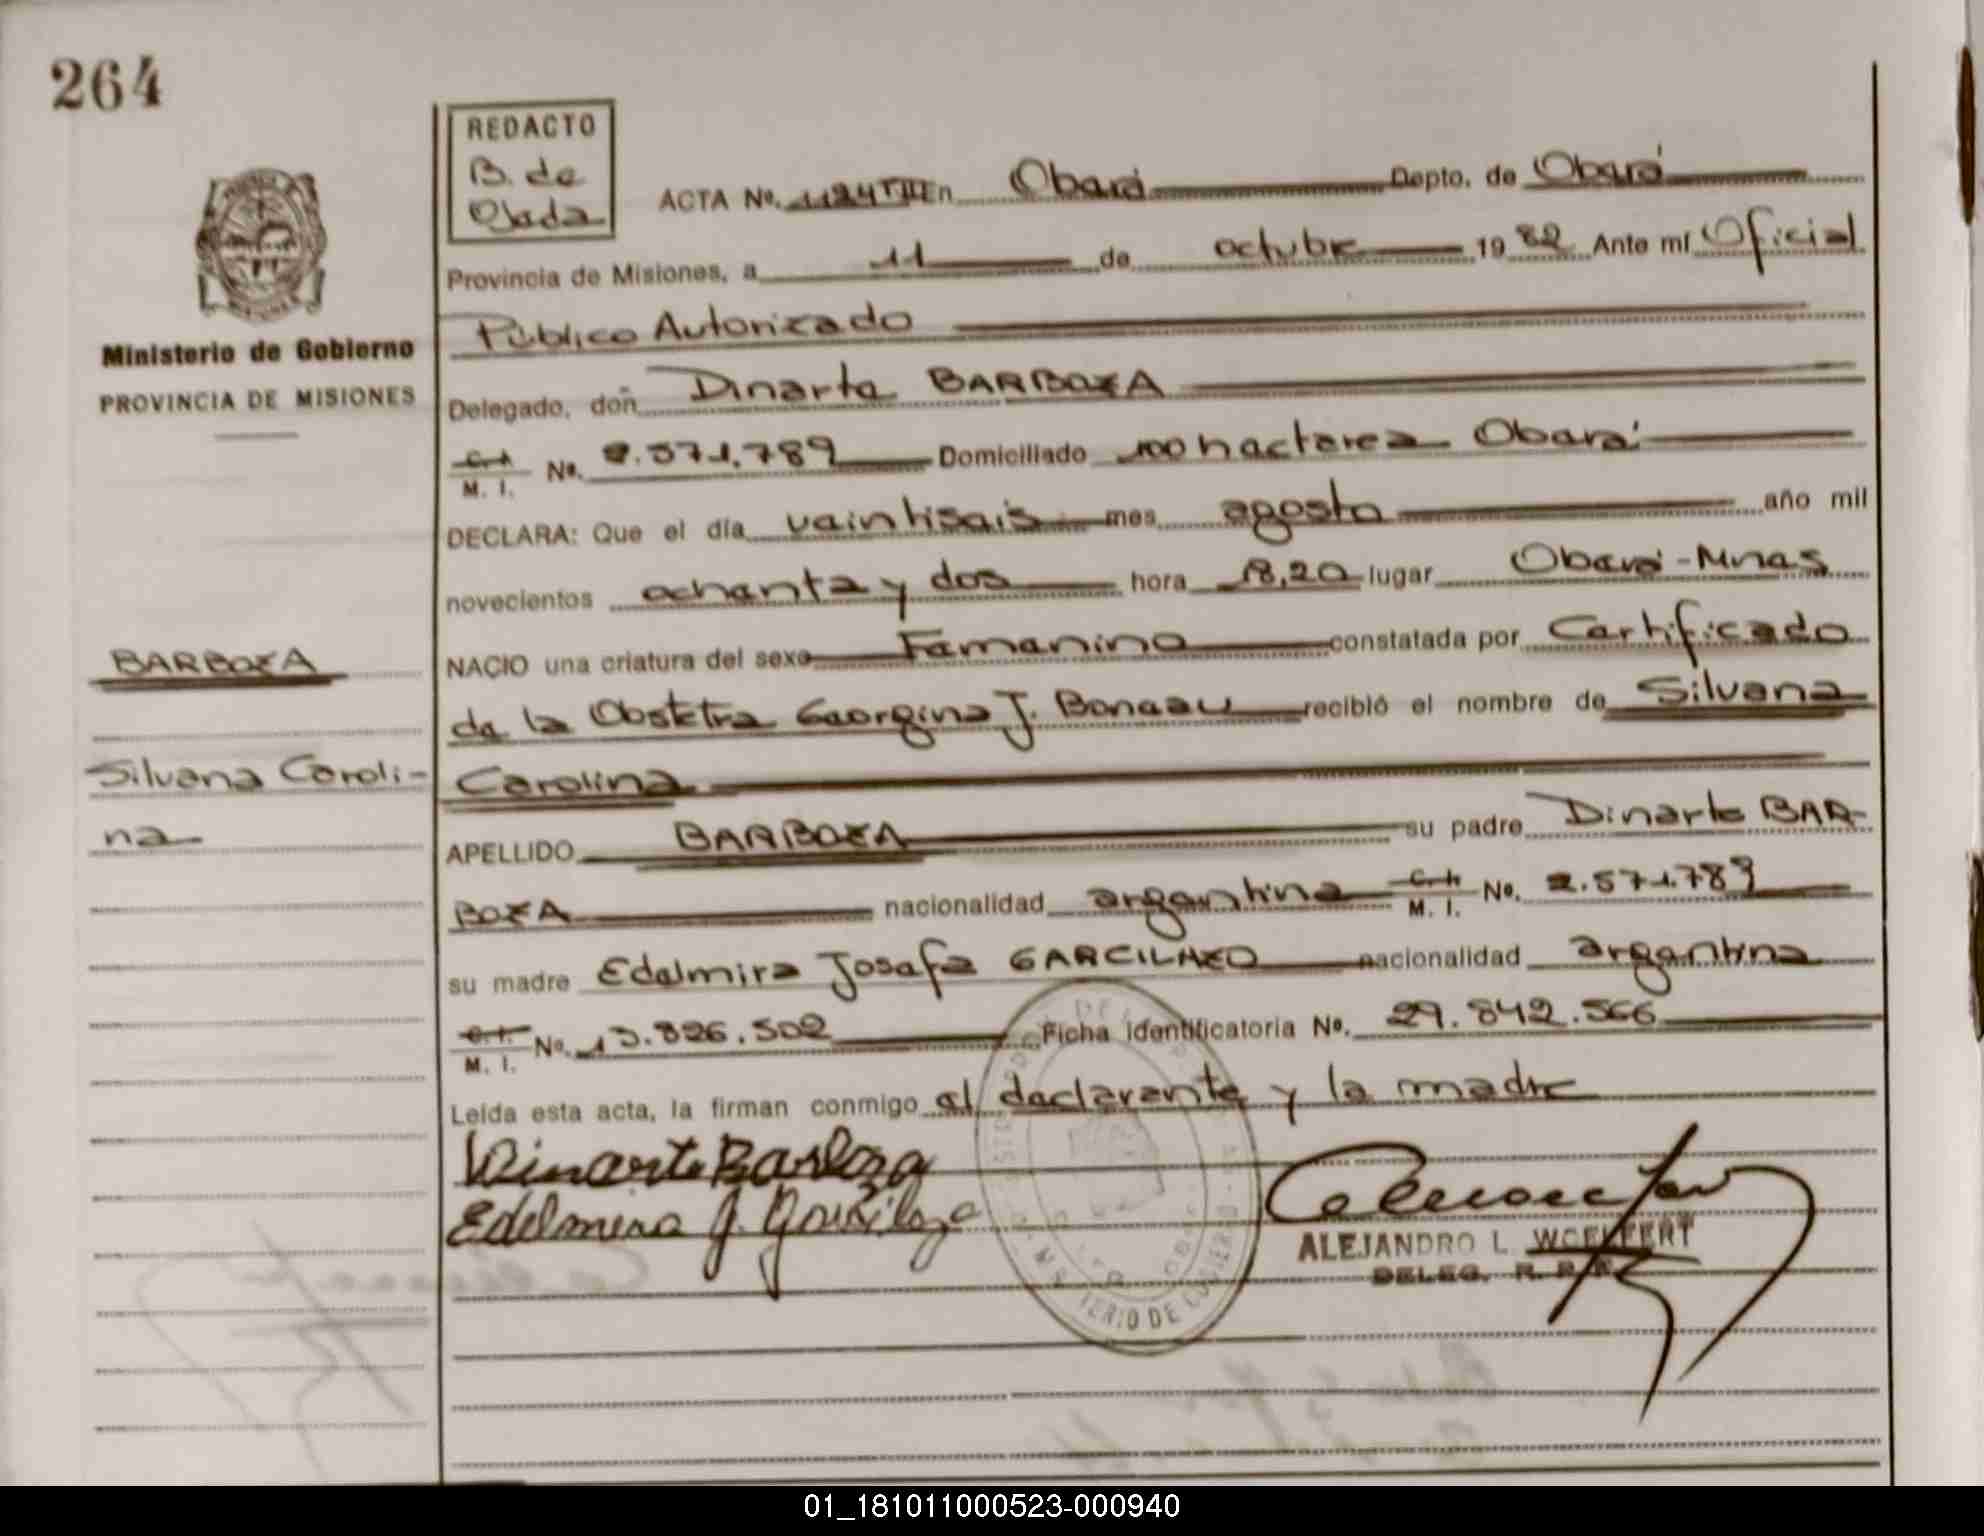 264
REDACTO
B. de
Ojeda
ACTA Nº. 1124 TIII En Oberá Depto. de Oberá
Provincia de Misiones, a 11 de octubre 1982 Ante mí Oficial
Público Autorizado
Ministerio de Gobierno
PROVINCIA DE MISIONES
Delegado, don Dinarte BARBOZA
C. I. M. I. Nº. 2.571.789 Domiciliado 100 hectarea Oberá
DECLARA: Que el día veintiseis mes agosto año mil
novecientos ochenta y dos hora 18,20 lugar Oberá-Mnes
NACIO una criatura del sexo Femenino constatada por Certificado
de la Obstetra Georgina J. recibió el nombre de Silvana
Carolina
BARBOZA
Silvana Caroli-
na
APELLIDO BARBOZA su padre Dinarte BAR-
BOZA nacionalidad argentina C. I. M. I. Nº. 2.571.789
su madre Edelmira Josefa GARCILAZO nacionalidad argentina
C. I. M. I. Nº. 13.826.502 Ficha identificatoria Nº. 29.842.566
Leída esta acta, la firman conmigo el declarante y la madre
Dinarte Barboza
Edelmira J.
ALEJANDRO L. WOELFERT
DELEG. R. P.
MINISTERIO DE GOBIERNO
01_181011000523-000940